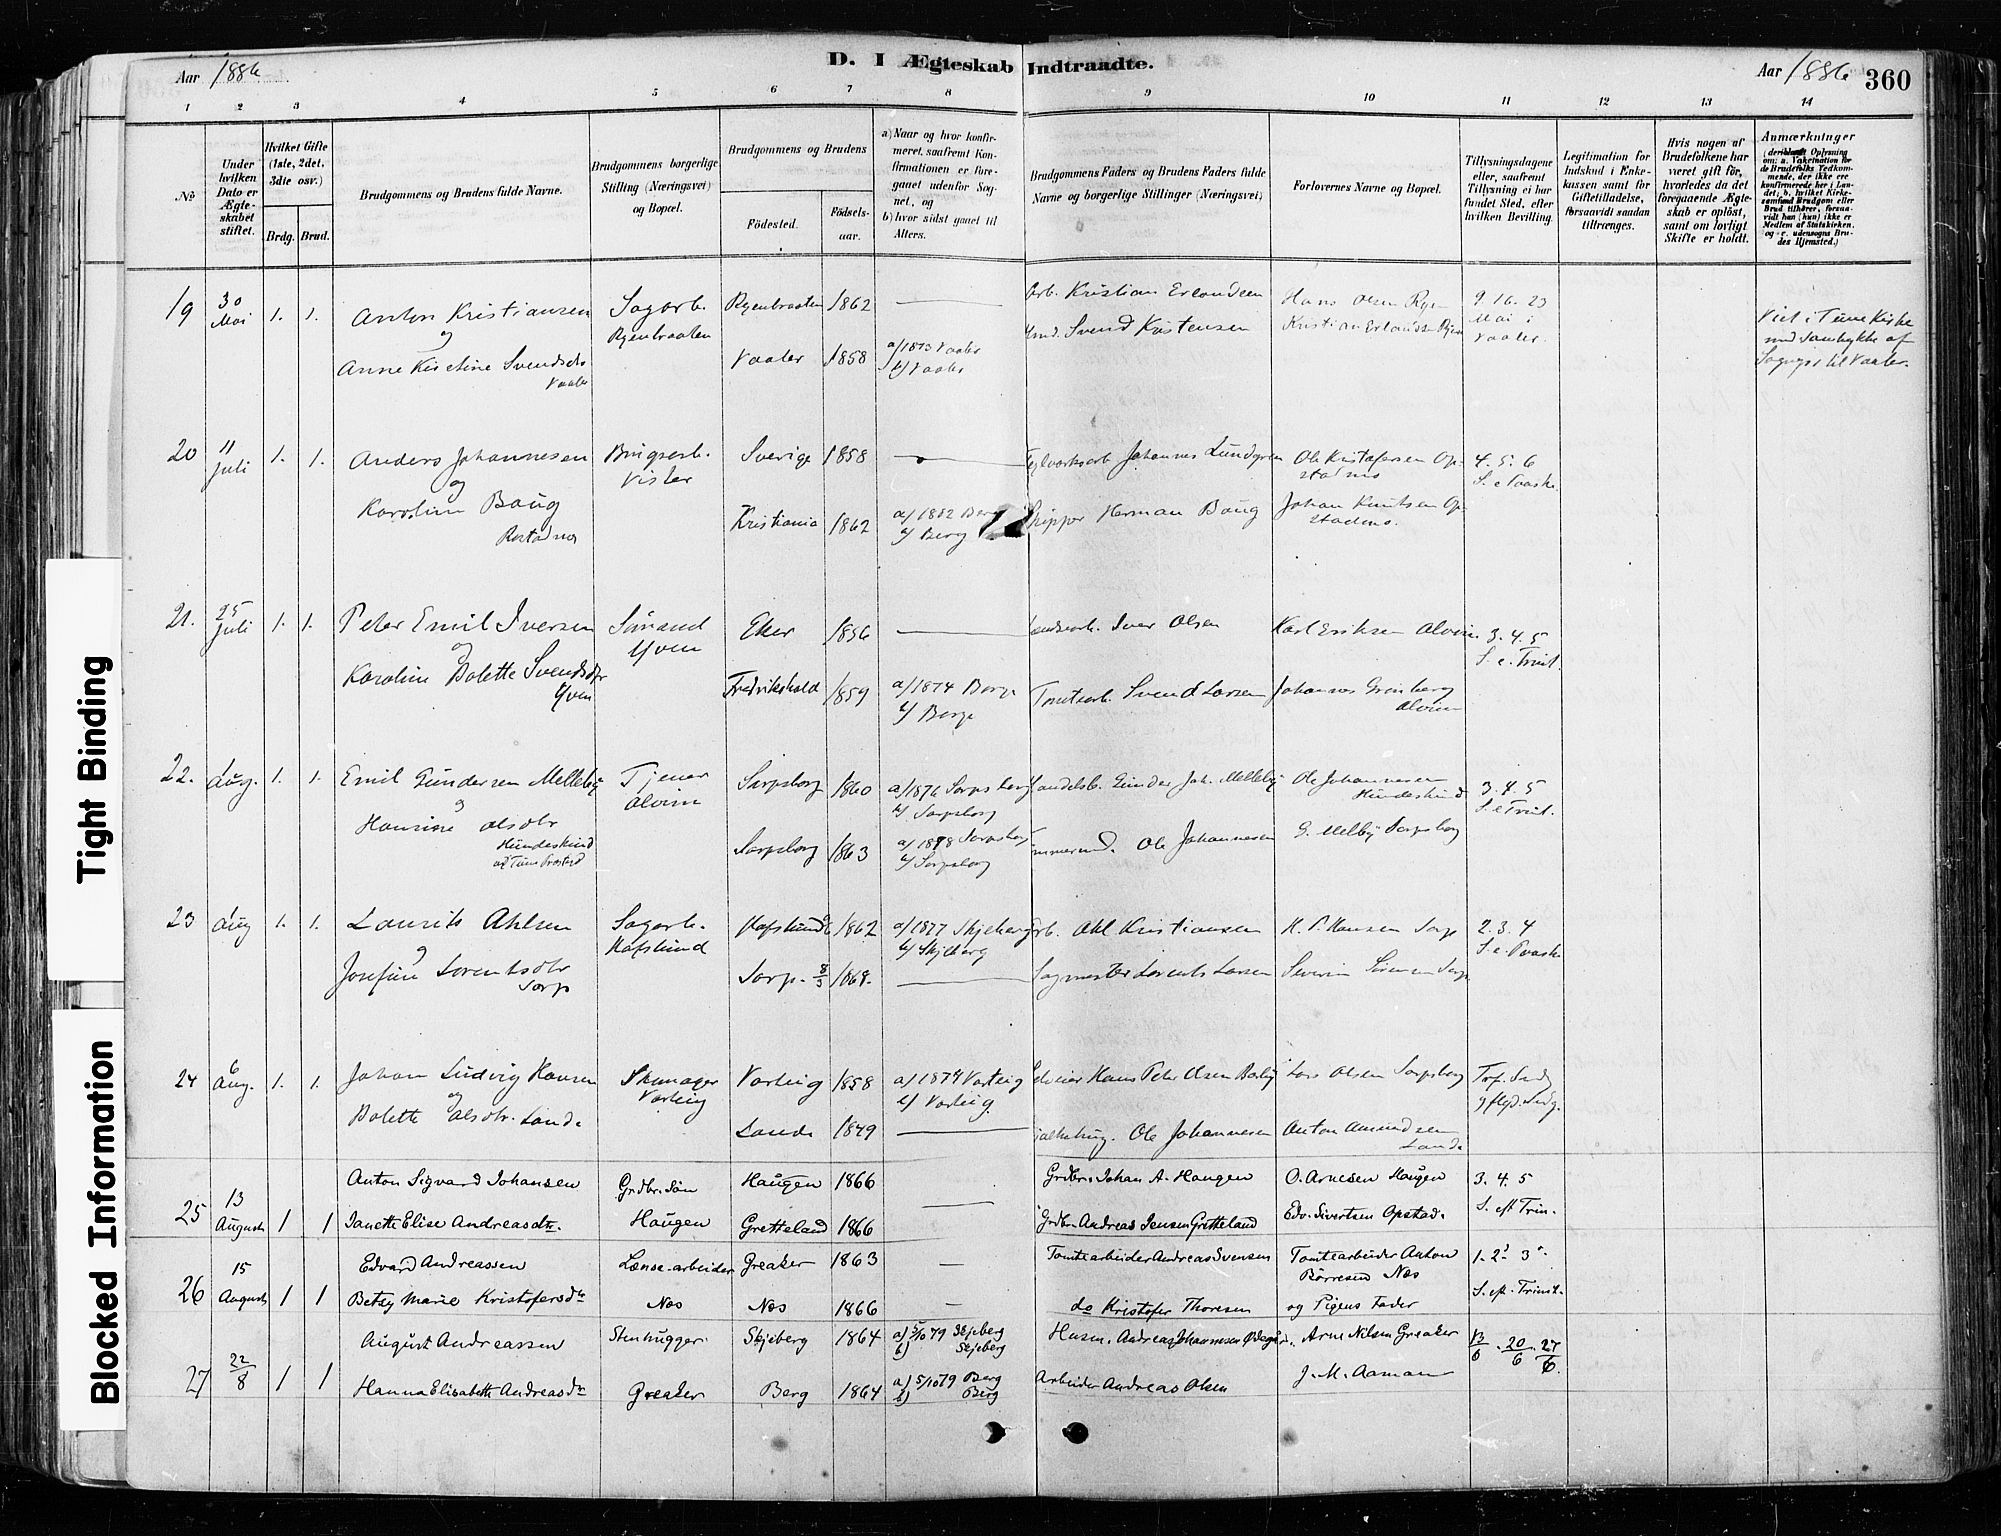 D. I Ægteskab Indtraadte.
Aar 1886
Aar 1886 360
1 2 3 4 5 6 7 8 9 10 11 12 13 14
№
Under hvilken Dato er Ægteskabet stiftet.
Hvilket Gifte (1ste, 2det, 3die osv.)
Brdg. Brud.
Brudgommens og Brudens fulde Navne.
Brudgommens borgerlige Stilling (Næringsvei) og Bopæl.
Brudgommens og Brudens
Fødested.
Fødselsaar.
a) Naar og hvor konfirmeret, saafremt Konfirmationen er foregaaet udenfor Sognet, og
b) hvor sidst gaaet til Alters.
Brudgommens Faders og Brudens Faders fulde Navne og borgerlige Stillinger (Næringsvei)
Forlovernes Navne og Bopæl.
Tillysningsdagene eller, saafremt Tillysning ei har fundet Sted, efter hvilken Bevilling.
Legitimation for Indskud i Enkekassen samt for Giftetilladelse, forsaavidt saadan tiltrænges.
Hvis nogen af Brudefolkene har været gift før, hvorledes da det foregaaende Ægteskab er opløst, samt om lovligt Skifte er holdt.
Anmærkninger
19 30 Mai 1. 1. Anton Kristiansen Sagarb. Ryenbraaten 1862 — Arb. Kristian Erlandsen Hans Olsen Ryen 9. 16. 23 Mai i Vaaler.
og Ryenbraaten
Anne Kirstine Svendsdtr Vaaler Vaaler 1858 a/1873 Vaaler b/ Vaaler Svend Kristensen Kristian Erlandsen Ryen
Viet i Tune Kirke med Samtykke af Sognepr til Vaaler.
20 11 Juli 1. 1. Anders Johannesen Visler Sverige 1858 — Johannes Lundgren Ole Kristofersen Opstadnes 4. 5. 6 S. e Paaske
og
Karoline Baug Kristiania 1862 a/1882 Berg b/ Berg Skipper Herman Baug Johan Knutsen Opstadnes.
21. 25 Juli 1. 1. Peter Emil Iversen Sömand Yven Eker 1856 — Iver Olsen Karl Eriksen Alvim 3. 4. 5 S. e. Trint.
og
Karoline Bolette Svendsdtr Yven Fredrikshald 1859 a/1874 Borge b/ Borge Tomtearb. Svend Larsen Johannes Grönberg Alvim
22. 1 Aug. 1. 1. Emil Gundersen Melleby Tjener Alvim Sarpsborg 1860 a/1876 Sarpsborg b/ Sarpsborg Handelsb. Gunder Joh. Melleby Ole Johannesen Hundeskind 3. 4. 5 S. e Trint.
og
Hansine Olsdtr Hundeskind Sarpsborg 1863 a/1878 Sarpsborg b/ Sarpsborg Ole Johannesen G. Melby Sarpsborg
23 1 Aug 1. 1. Laurits Ahlsen Sagarb. Hafslund Hafslund 1862 a/1877 Skjeberg b/ Skjeberg Arb. Ahl Kristiansen H. P. Hansen Sarp 2. 3. 4 S. e. Paaske
og
Josefine Lorentsdtr Sarp Sarp. 1868. — Sagmester Lorents Larsen Severin Sörensen Sarp
24 6 Aug. 1. 1. Johan Ludvig Hansen Skomager Varteig Varteig 1858 a/1874 Varteig b/ Varteig. Selveier Hans Peter Olsen Lars Olsen Sarpsborg
og
Bolette Olsdtr. Lande Lande 1849 — Ole Johannesen Anton Amundsen Lande
25 13 August 1 1 Anton Sigvard Johansen Grdbr. Søn Haugen 1866 — Grdbr. Johan A. Haugen O. Arnesen Haugen 3. 4. 5
Janette Elise Andreasdtr. Haugen Gretteland 1866 Grdbr. Andreas Jensen Gretteland Edv. Sivertsen Opstad. S. eft Trin.
26 15 August 1 1 Edvard Andreassen Lænse-arbeider Greaker 1863 — Tomtearbeider Andreas Svensen Tomtearbeider Anton Børresen Næs 1. 2. 3.
Betzy Marie Kristofersdtr Næs Næs 1866 — do Kristofer Thoresen og Pigens Fader S. eft. Trinit.
27 22/8 1 1 August Andreassen Stenhugger Skjeberg 1864 a) 5/10 79 Skjeberg b) Skjeberg Husm. Andreas Johannesen Arne Nilsen Greaker 13/6 . 20/6 . 27/6.
Hanna Elisabeth Andreasdtr Greaker Berg 1864 a) 5/10 79 Berg b) Berg Arbeider Andreas Olsen J. M. Aaman
Tight Binding
Blocked Information